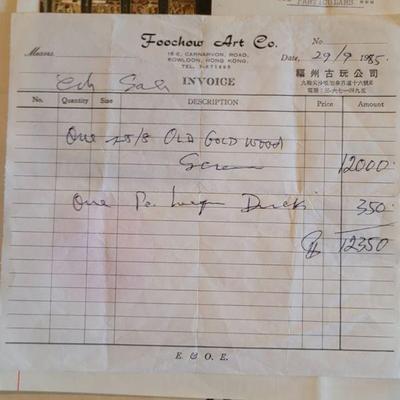 PARTICULARS
Foochow Art Co.
16 E, CARNARVON, ROAD,
KOWLOON, HONG KONG.
TEL. 3-671495
No
Messrs.
Date, 29/9 1985
福州古玩公司
九龍尖沙咀加拿芬道十六號E
電話：三-六七一四九五
Cash Sale
INVOICE
No. Quantity Size DESCRIPTION Price Amount
One OLD GOLD WOOD
Screen 12000.
One Pc. Duck 350.
$ 12350
E. & O. E.